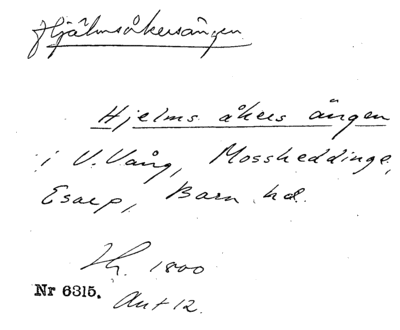 Hjälmsåkersängen
Hjelms åkers ängen
i V. Vång, Mossheddinge,
Esarp, Bara hd.
Th. 1800
Nr 6315.
Ant 12.